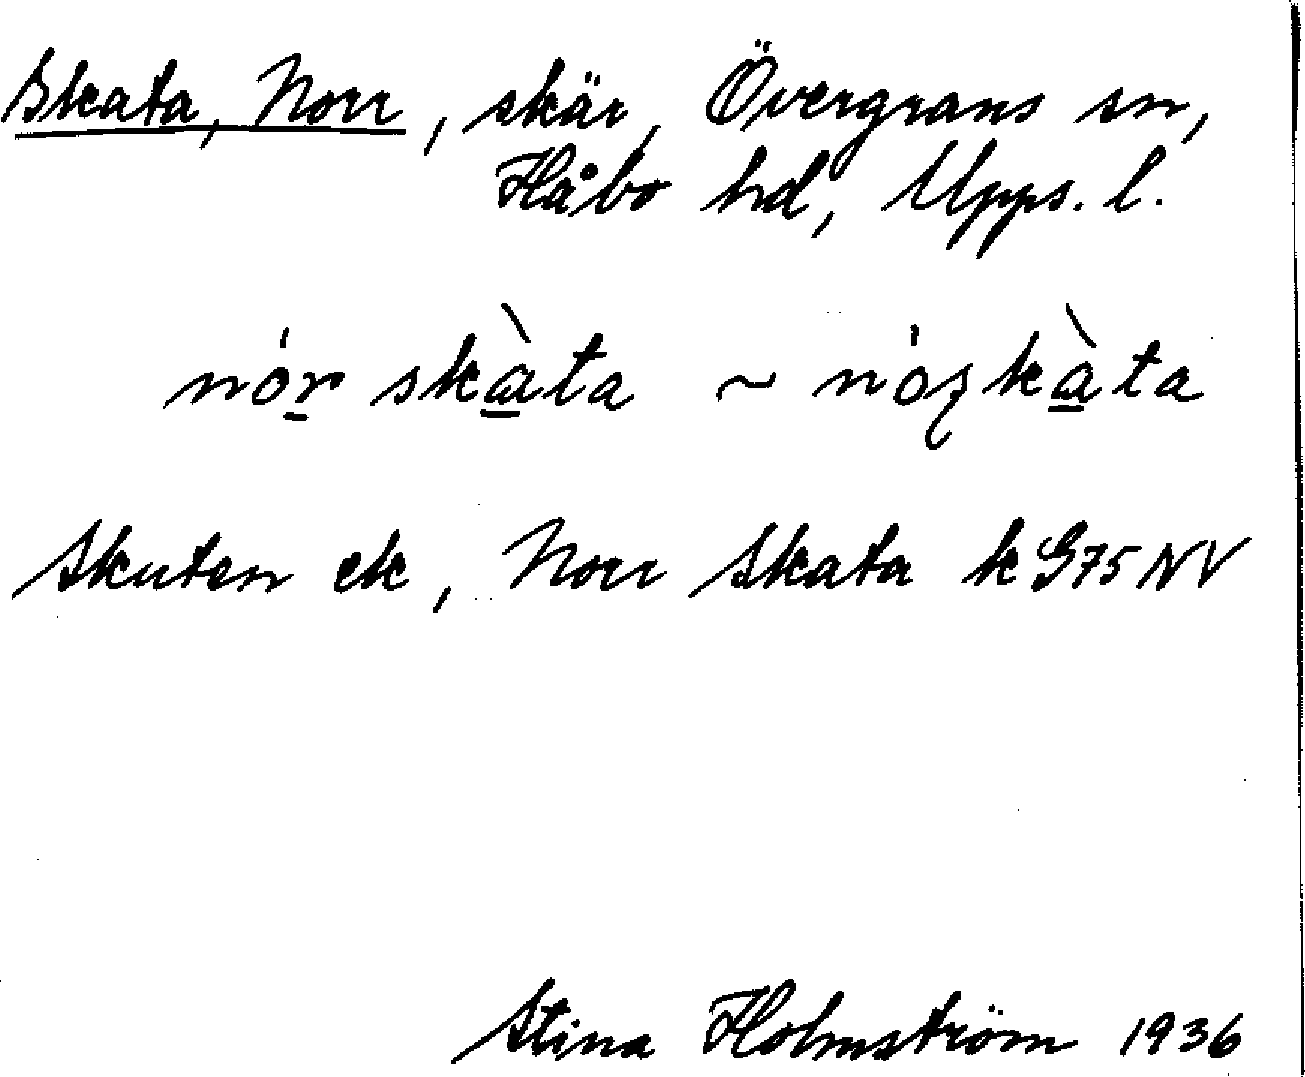 Skata, Norr, skär, Övergrans sn,
Håbo hd, Upps. l.
nór skàta ~ nóʂkàta
Skuten ek, Norr Skata k G75 NV
Stina Holmström 1936